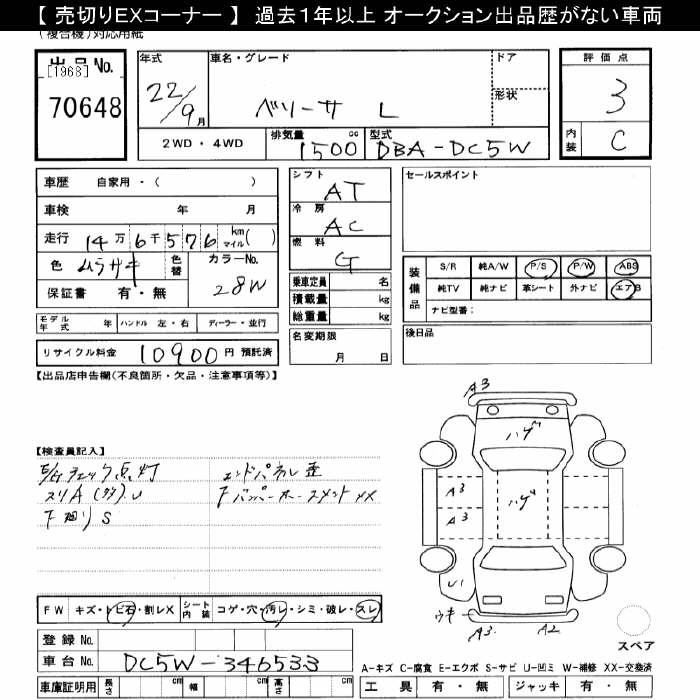 【 売切りEXコーナー 】 過去１年以上 オークション出品歴がない車両
(複合機)対応用紙
出品No.
[1968]
70648
年式
22/9月
車名・グレード
ベリーサ L
ドア
形状
評価点
3
内装 C
2WD ・ 4WD
排気量 1500 cc
型式 DBA-DC5W
車歴 自家用・( )
車検 年 月
走行 14万6千576 km マイル( )
色 ムラサキ 色替
カラーNo. 28W
保証書 有・無
シフト AT
冷房 AC
燃料 G
乗車定員 名
積載量 kg
総重量 kg
セールスポイント
装備品
S/R 純A/W P/S P/W ABS
純TV 純ナビ 革シート 外ナビ エアB
ナビ型番：
モデル年式 年 ハンドル 左・右 ディーラー・並行
名変期限 月 日
後日品
リサイクル料金 10900円 預託済
【出品店申告欄(不良箇所・欠品・注意事項等)】
【検査員記入】
チェック点灯
エンドパネル歪
スリA
下廻りS
A3
ハゲ
A3
ハゲ
A3
U1
ウキ
A3
A2
スペア
FW キズ・トビ石・割レX シート内装 コゲ・穴・汚レ・シミ・破レ・スレ
登録No.
車台No. DC5W-346533
車庫証明用 長さ cm 幅 cm 高さ cm
A-キズ C-腐食 E-エクボ S-サビ U-凹ミ W-補修 XX-交換済
工具 有・無 ジャッキ 有・無